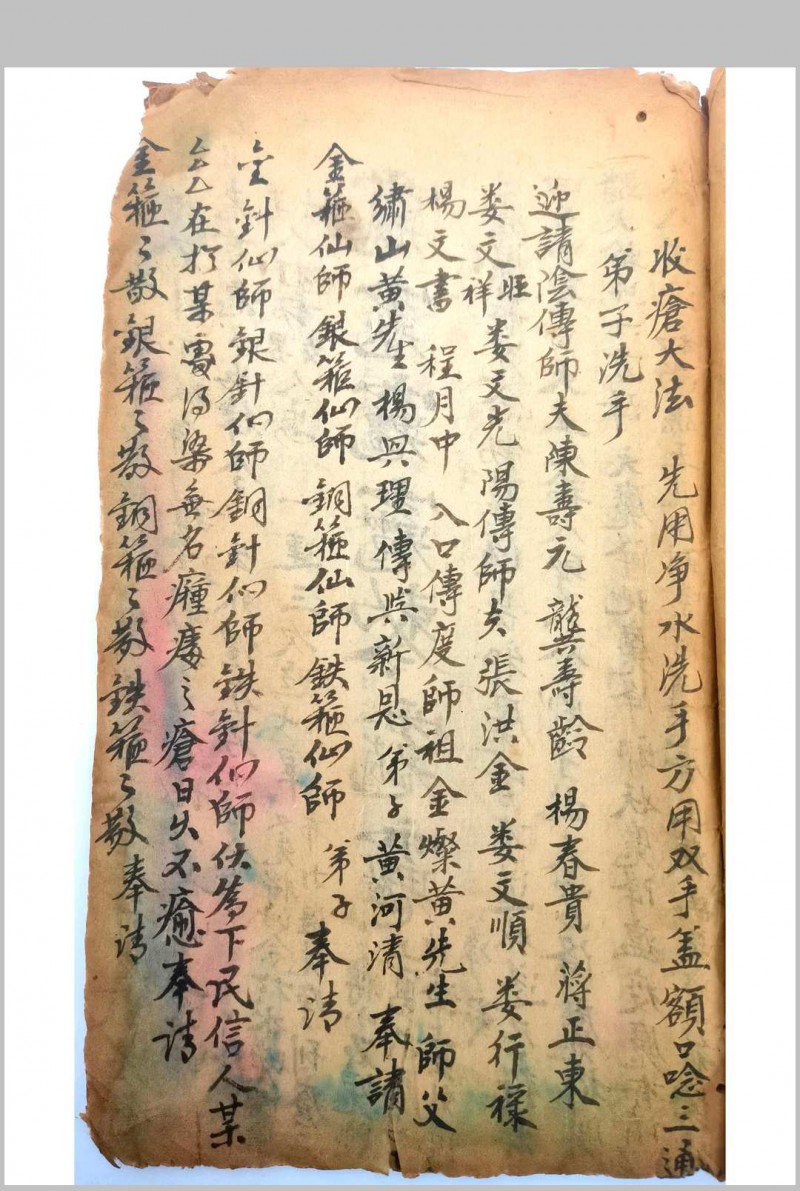 收瘡大法　先用净水洗手方用双手盖額口唸三通
弟子洗手
迎請陰傳師夫陳壽元　龔壽齡　楊春貴　蔣正東
娄文祥　旺　娄文光　陽傳師夫　張洪金　娄文順　娄行祿
楊文書　程月中　入口傳度師祖金燦黃先生　師父
繡山黃先生楊興理傳與新恩弟子黃河清　奉請
金箍仙師銀箍仙師　銅箍仙師鉄箍仙師　弟子奉请
金針仙師銀針仙師銅針仙師鉄針仙師伏為下民信人某
在於某處得染無名癰之瘡日久不癒奉请
金箍々散銀箍々散銅箍々散鉄箍々散奉请